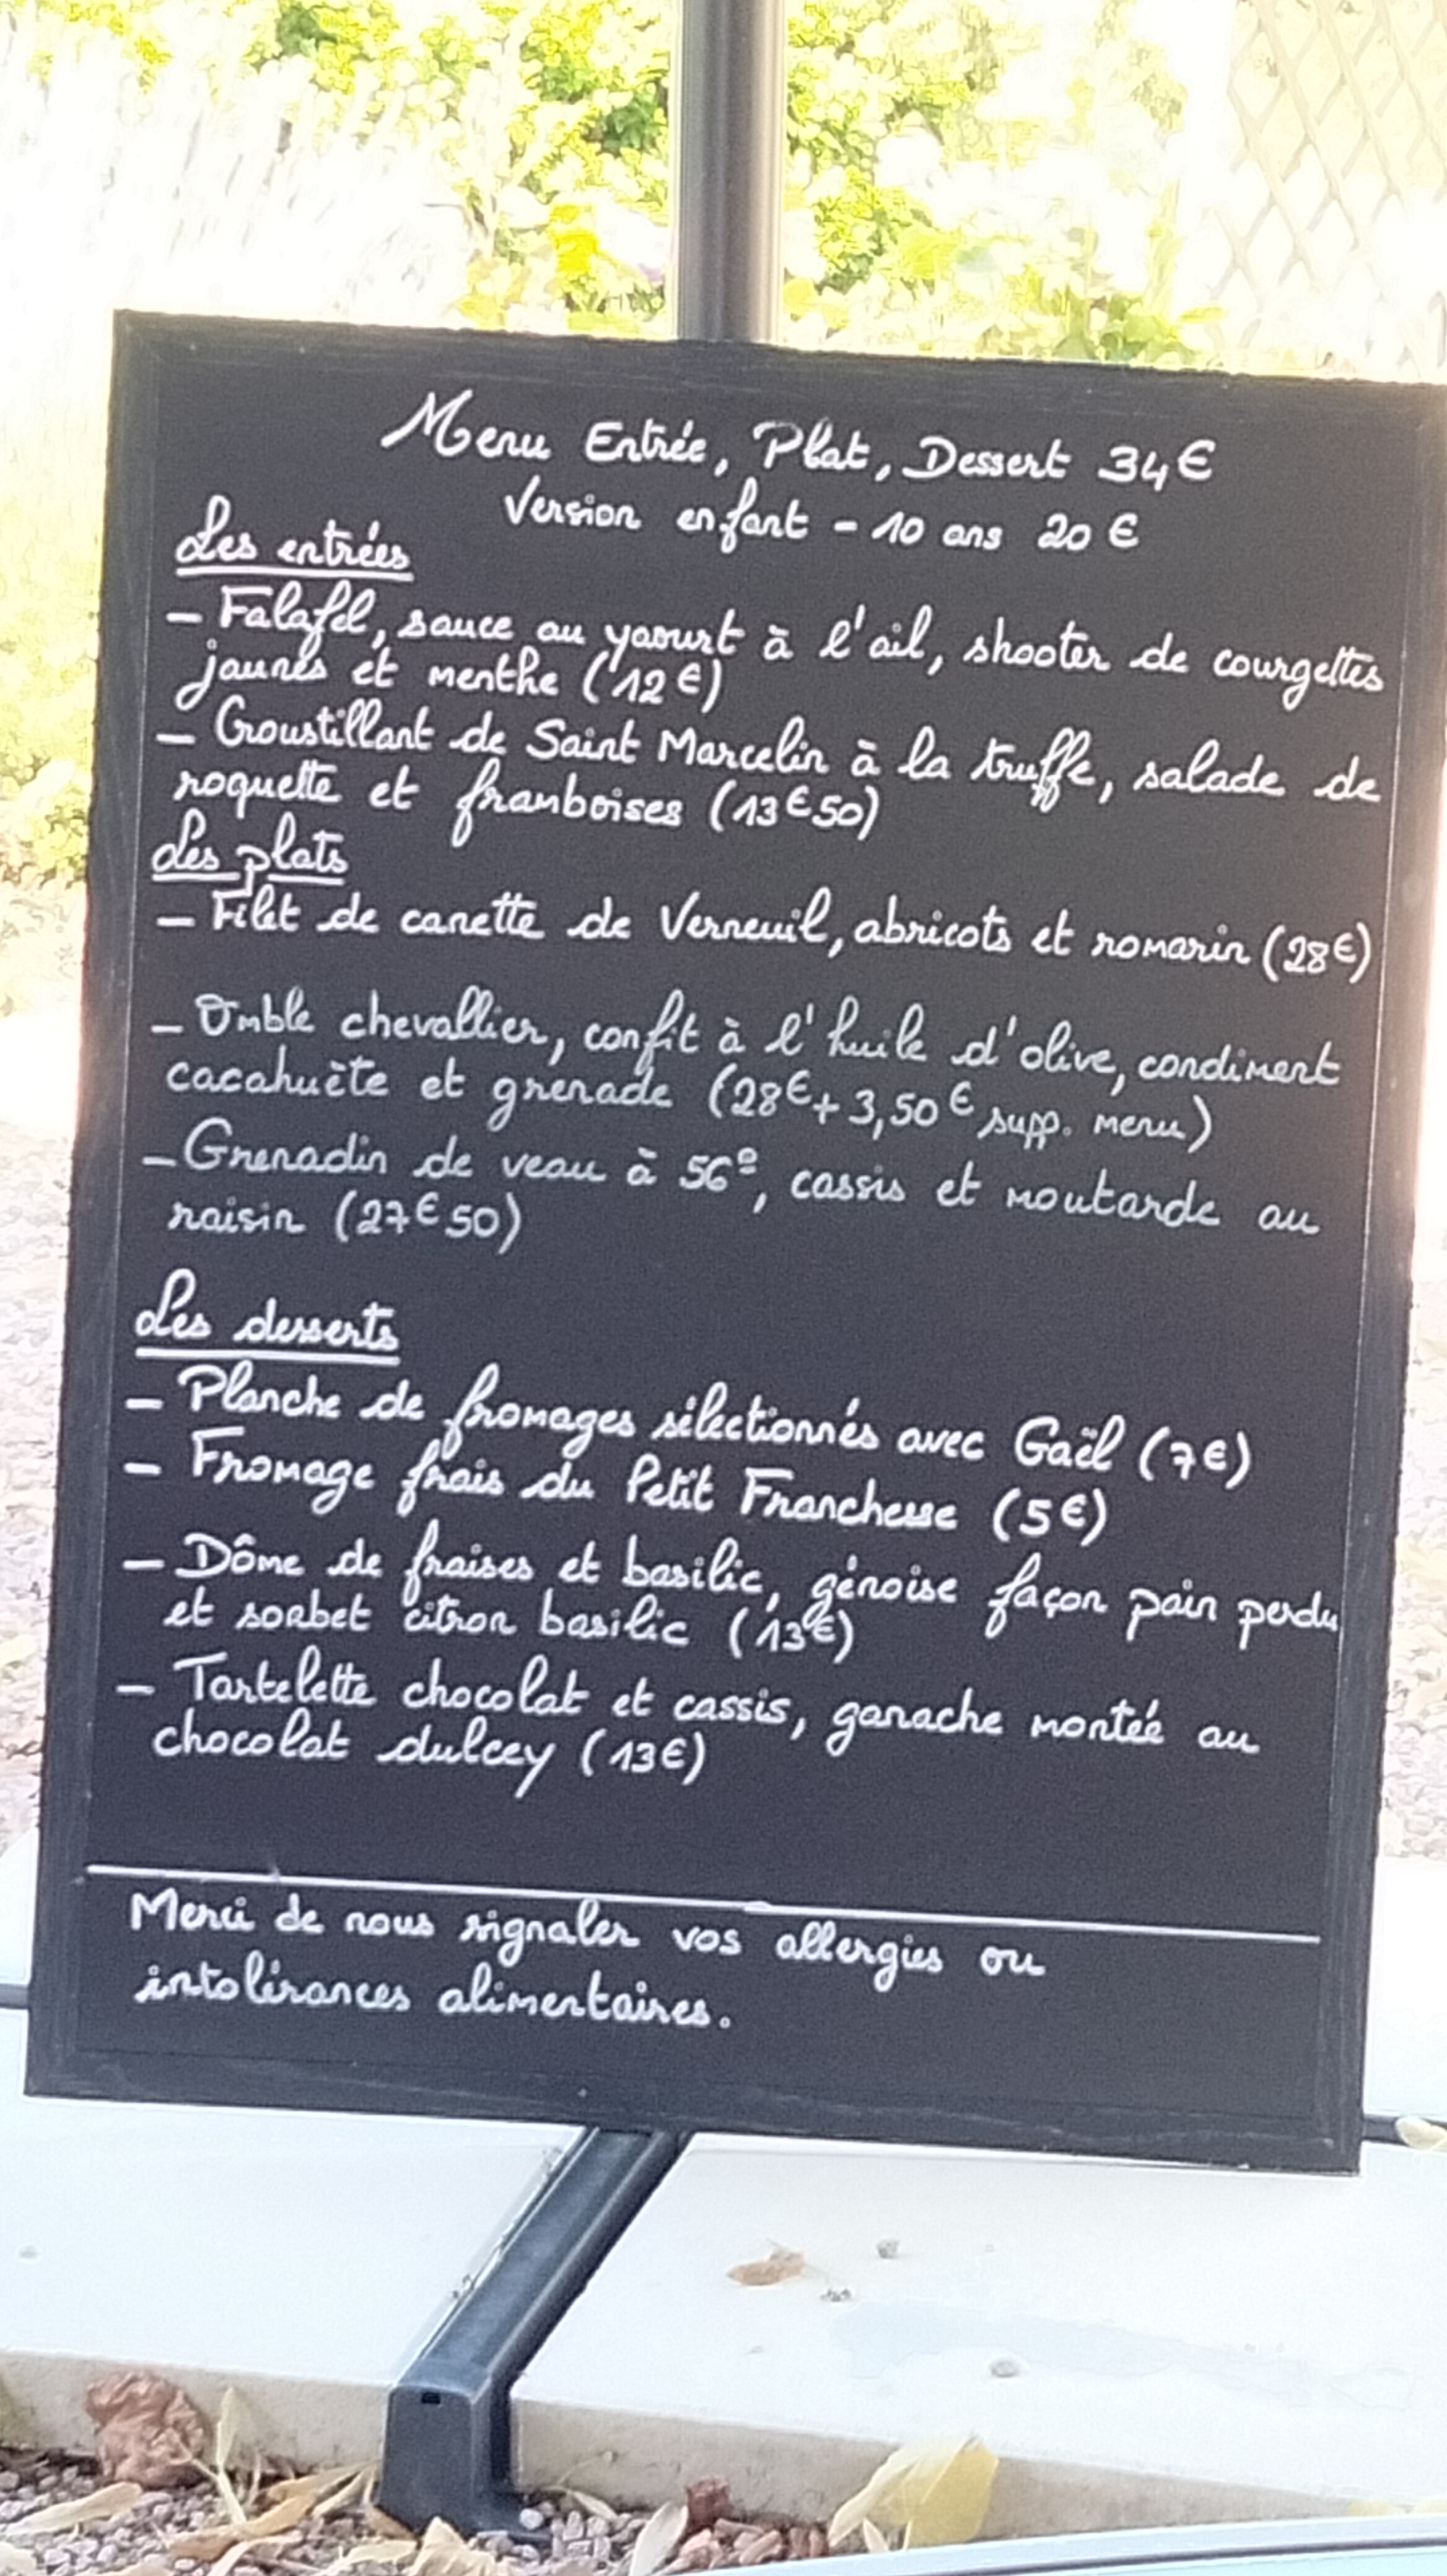 Menu Entrée, Plat, Dessert 34€
Version enfant - 10 ans 20 €
Les entrées
- Falafel, sauce au yaourt à l'ail, shooter de courgettes
jaunes et menthe (12 €)
- Croustillant de Saint Marcelin à la truffe, salade de
roquette et framboises (13€50)
Les plats
- Filet de canette de Verneuil, abricots et romarin (28€)
- Omble chevallier, confit à l'huile d'olive, condiment
cacahuète et grenade (28€+ 3,50€ supp. menu)
- Grenadin de veau à 56°, cassis et moutarde au
raisin (27€50)
Les desserts
- Planche de fromages sélectionnés avec Gaël (7€)
- Fromage frais du Petit Franchesse (5€)
- Dôme de fraises et basilic, génoise façon pain perdu
et sorbet citron basilic (13€)
- Tartelette chocolat et cassis, ganache montée au
chocolat dulcey (13€)
Merci de nous signaler vos allergies ou
intolérances alimentaires.